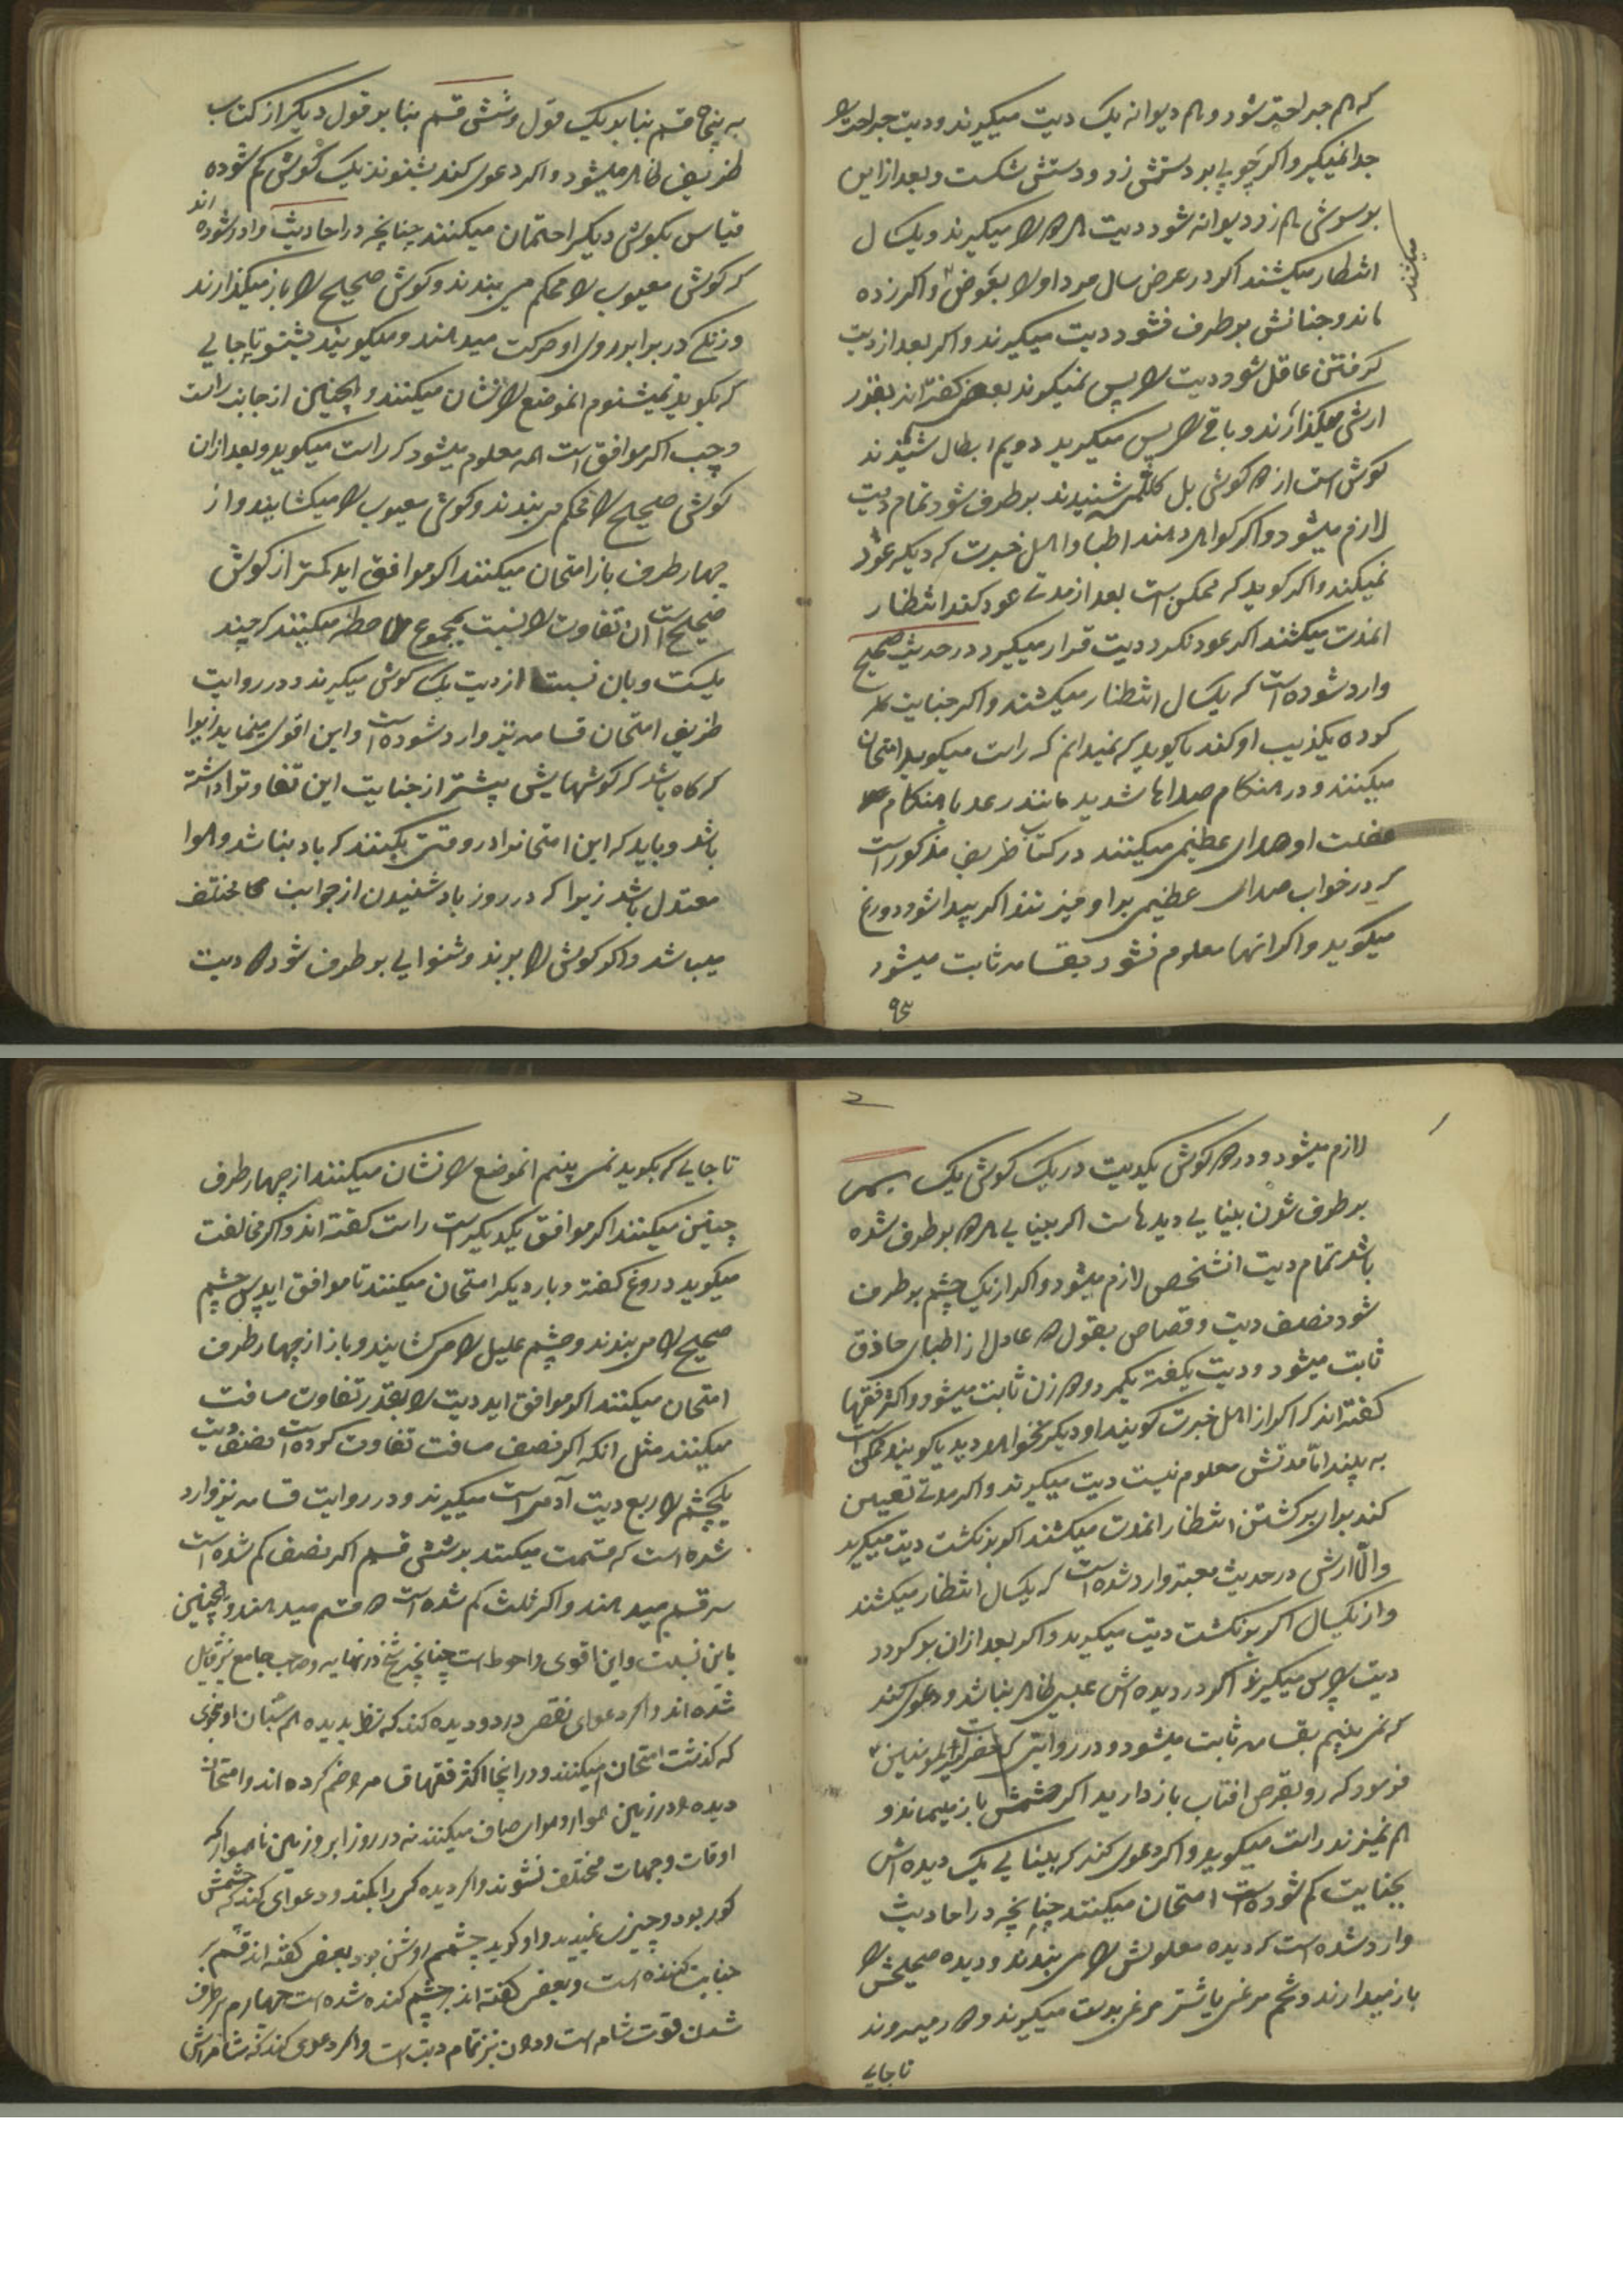 که هم جراحت شود و هم دیوانه یک دیت میگیرند و دیت جراحت را
جدا نمیگیر و اگر چوبی بر دستش زد و دستش شکست و بعد از این
بر سرش هم زد دیوانه شود دیت هر دو را میگیرند و یکسال
میکشند
انتظار میکشند اگر در عرض سال مرد او را بعوض و اگر زنده
ماند و جنانش برطرف نشود دیت میگیرند و اگر بعد از دیت
گرفتن عاقل شود دیت را پس نمیگیرند بعضی گفته اند بقدر
ارش میگذارند و باقی را پس میگیرید دویم ابطال شنیدند
گوش است از دو گوش بل کلشی شنیدند برطرف شود تمام دیت
لازم میشود و اگر گواهی دهند اطبا و اهل خبرت که دیگر عود
نمیکند و اگر گوید که ممکن است بعد از مدتی عود کند انتظار
آنمدت میکشند اگر عود نکرد دیت قرار میگیرد در حدیث صحیح
وارد شوده است که یکسال انتظار میکشند و اگر جنایت
کرده تکذیب او کند یا گوید که نمیدانم که راست میگوید امتحان
میکنند و در هنگام صداها شدید مانند رعد یا هنگام
غفلت او صدای عظیمی میکنند در کتاب ظریف مذکور است
که در خواب صدای عظیمی بر او میزنند اگر بیدار شود دروغ
میگوید و اگر اینها معلوم نشود بقسامه ثابت میشود
۹۳
به پنجاه قسم بنا بر یک قول و شش قسم بنا بر قول دیگر از کتاب
ظریف ظاهر میشود و اگر دعوی کند بشنوند یک گوش کم شوده
قیاس بگوش دیگر احتمان میکنند چنانچه در احادیث وارد شوده اند
که گوش معیوب را محکم می بندند و گوش صحیح را باز میگذارند
و زنگی در برابر روی او حرکت میدهند و میگویند بشنو تا جایی
که بگوید نمیشنوم آنموضع را نشان میکنند و همچنین از جانب راست
و چپ اگر موافق است همه معلوم میشود که راست میگوید و بعد از آن
گوش صحیح را محکم می بندند و گوش معیوب را میکشایند و از
چهار طرف باز امتحان میکنند اگر موافق اید کمتر از گوش
صحیح است آن تفاوت را نسبت بمجموع ملاحظه میکنند که چند
یکست و بان نسبت از دیت یک گوش میگیرند و در روایت
ظریف امتحان قسامه نیز وارد شوده است و این اقوی مینماید زیرا
که گاه باشد که گوشهایش پیشتر از جنایت این تفاوترا داشته
باشد و باید که این امتحانرا در وقتی بکنند که باد نباشد و هوا
معتدل باشد زیرا که در روز باد شنیدن از جوانب مختلف
میباشد و اگر گوش را ببرند و شنوایی برطرف شود دو دیت
لازم میشود و در دو گوش یکدیت در یک گوش یک
برطرف شدن بینایی دیدهاست اگر بینایی هر دو برطرف شده
باشد تمام دیت انشخص لازم میشود و اگر از یک چشم برطرف
شود نصف دیت و قصاص بقول دو عادل از اطبای حاذق
ثابت میشود و دیت بگفته یکمرد و دو زن ثابت میشود و اکثر فقها
گفته اند که اگر از اهل خبرت گویند او دیگر نخواهد دید یا گویند ممکن است
به بیند اما مدتش معلوم نیست دیت میگیرند و اگر مدتی تعیین
کند برای برگشتن انتظار آنمدت میکشند اگر برنگشت دیت میگیرند
والا ارش در حدیث معتبر وارد شده است که یکسال انتظار میکشند
و از یکسال اگر برنگشت دیت میگیرد و اگر بعد از آن برگردد
دیت را پس میگیرند اگر در دیده اش عیبی ظاهر نباشد و دعوی کند
که نمی بینم بقسامه ثابت میشود و در روایتی که حضرت امیرالمومنین
فرمود که رو بقرص افتاب باز دارید اگر چشمش باز میماند و
هم نمیزند راست میگوید و اگر دعوی کند که بینایی یک دیده اش
بجنایت کم شوده است امتحان میکنند چنانچه در احادیث
وارد شده است که دیده معلولش را می بندند و دیده صحیحش را
باز میدارند و تخم مرغی یا شتر مرغی بدست میگیرند و دور میروند
تا جایی
تا جایی که بگوید نمی بینم آنموضع را نشان میکنند از چهار طرف
چنین میکنند اگر موافق یکدیگر است راست گفته اند و اگر مخالفت
میگوید دروغ گفته و بار دیگر امتحان میکنند تا موافق اید پس چشم
صحیح را می بندند و چشم علیل را می کشایند و باز از چهار طرف
امتحان میکنند اگر موافق اید دیت را بقدر تفاوت مسافت
میکنند مثل آنکه اگر نصف مسافت تفاوت کرده است نصف دیت
یکچشم را ربع دیت آدمی است میگیرند و در روایت قسامه نیز وارد
شده است که قسمت میکنند بر شش قسم اگر نصف کم شده است
سه قسم میدهند و اگر ثلث کم شده است دو قسم میدهند و همچنین
باین نسبت و این اقوی و احوط است چنانچه شیخ در نهایه و صاحب جامع نیز قایل
شده اند و اگر دعوای نقص در دو دیده کند که نظر بدیده هم سنان او بنحوی
که گذشت امتحان میکنند و در اینجا اکثر فقها قسامه وضم کرده اند و امتحان
دیده در زمین هموار و هوای صاف میکنند نه در روز ابر و زمین ناهموار که
اوقات و جهات مختلف نشوند و اگر دیده کسی را بکند و دعوای کند که چشمش
کور بود و چیزی نمیدید و او گوید چشمم روشن بود بعضی گفته اند قسم بر
جنایت کننده است و بعضی گفته اند بر چشم کنده شده است چهارم برطرف
شدن قوت شامه است و در آن نیز تمام دیت است و اگر دعوی کند که شامه اش